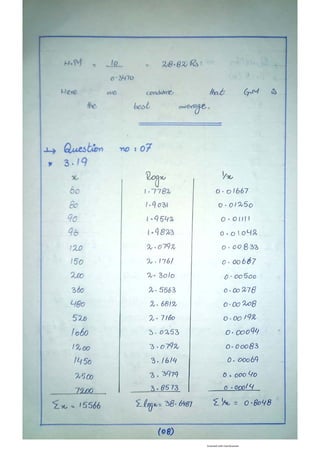 H.M = 10 / 0.3470 = 28.82 Rs:
Here we conclude that GM is
the best average.
→ Question no : 07
* 3.19
x logx 1/x
60 1.7782 0.01667
80 1.9031 0.01250
90 1.9542 0.01111
96 1.9823 0.01042
120 2.0792 0.00833
150 2.1761 0.00667
200 2.3010 0.00500
360 2.5563 0.00278
480 2.6812 0.00208
520 2.7160 0.00192
1060 3.0253 0.00094
1200 3.0792 0.00083
1450 3.1614 0.00069
2500 3.3979 0.00040
7200 3.8573 0.00014
Σx = 15566 Σlogx = 38.6487 Σ1/x = 0.8048
(08)